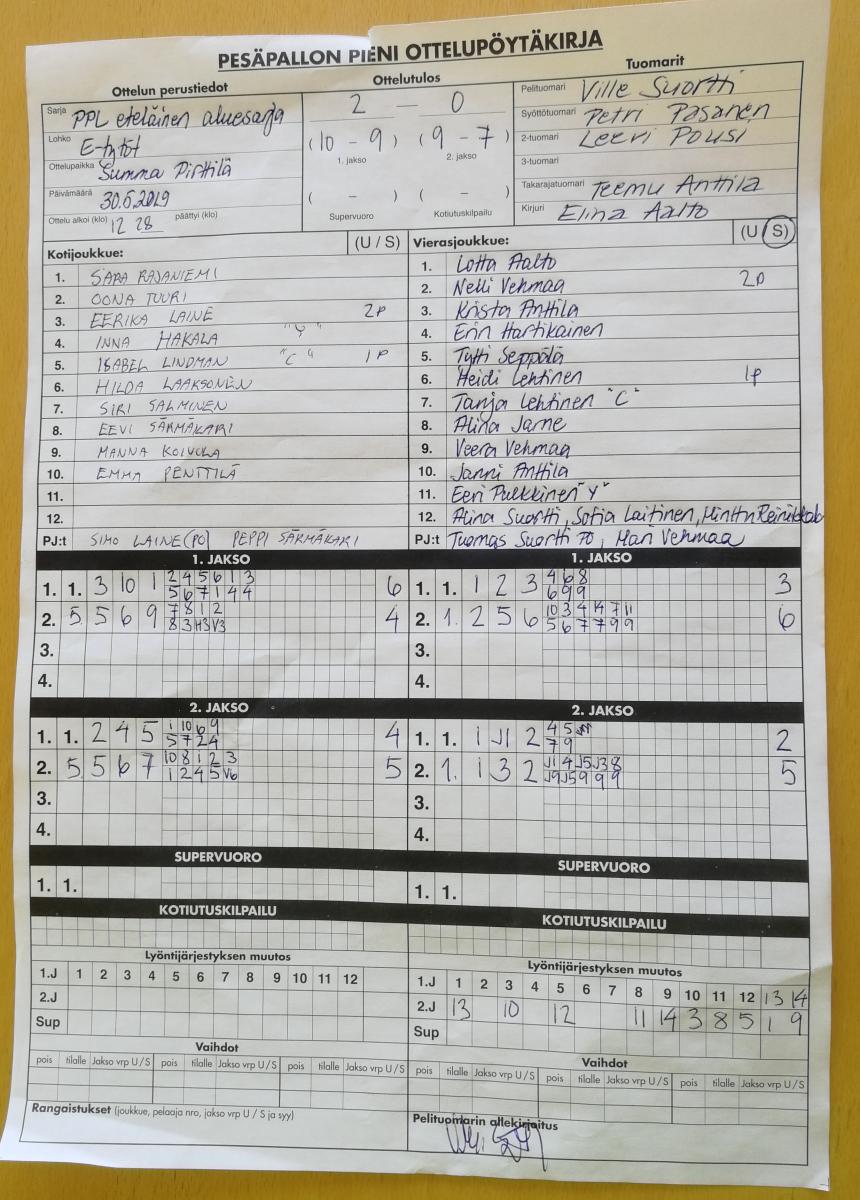 PESÄPALLON PIENI OTTELUPÖYTÄKIRJA
Ottelun perustiedot
Sarja PPL eteläinen aluesarja
Lohko E-tytöt
Ottelupaikka Summa Pirttilä
Päivämäärä 30.6.2019
Ottelu alkoi (klo) 12 28 päättyi (klo)
Ottelutulos
2 — 0
(10 - 9) (9 - 7)
1. jakso 2. jakso
( - ) ( - )
Supervuoro Kotiutuskilpailu
Tuomarit
Pelituomari Ville Suortti
Syöttötuomari Petri Pasanen
2-tuomari Leevi Pousi
3-tuomari
Takarajatuomari Teemu Anttila
Kirjuri Elina Aalto
Kotijoukkue: (U / S)
1. SARA RAJANIEMI
2. OONA TUURI
3. EERIKA LAINE 2P
4. INNA HAKALA "Y"
5. ISABEL LINDMAN "C" 1P
6. HILDA LAAKSONEN
7. SIRI SALMINEN
8. EEVI SÄRMÄKARI
9. MANNA KOIVULA
10. EMMA PENTTILÄ
11.
12.
PJ:t SIMO LAINE (PO) PEPPI SÄRMÄKARI
Vierasjoukkue: (U / S)
1. Lotta Aalto
2. Nelli Vehmaa 2P
3. Krista Anttila
4. Erin Hartikainen
5. Tytti Seppälä
6. Heidi Lehtinen 1P
7. Tanja Lehtinen "C"
8. Alina Jarne
9. Veera Vehmaa
10. Janni Anttila
11. Eeri Pulkkinen "Y"
12. Alina Suortti, Sofia Laitinen, Minttu
PJ:t Tuomas Suortti PO, Mari Vehmaa
1. JAKSO
1. 1. 3 10 1 2 4 5 6 1 3 6
5 6 7 1 4 4
2. 5 5 6 9 7 8 1 2 4
8 3 H3 V3
3.
4.
1. JAKSO
1. 1. 1 2 3 4 6 8 3
6 9 9
2. 1. 2 5 6 10 3 4 14 7 11 6
5 6 7 7 9 9
3.
4.
2. JAKSO
1. 1. 2 4 5 1 10 6 9 4
5 7 2 4
2. 5 5 6 7 10 8 1 2 3 5
1 2 4 5 V6
3.
4.
2. JAKSO
1. 1. 1 J1 2 4 5 2
7 9
2. 1. 1 3 2 J1 4 J5 J3 8 5
J9 J5 9 9 9
3.
4.
SUPERVUORO
1. 1.
SUPERVUORO
1. 1.
KOTIUTUSKILPAILU
KOTIUTUSKILPAILU
Lyöntijärjestyksen muutos
1.J 1 2 3 4 5 6 7 8 9 10 11 12
2.J
Sup
Lyöntijärjestyksen muutos
1.J 1 2 3 4 5 6 7 8 9 10 11 12 13 14
2.J 13 10 12 11 14 3 8 5 1 9
Sup
Vaihdot
pois tilalle Jakso vrp U / S pois tilalle Jakso vrp U / S pois tilalle Jakso vrp U / S
Vaihdot
pois tilalle Jakso vrp U / S pois tilalle Jakso vrp U / S pois tilalle Jakso vrp U / S
Rangaistukset (joukkue, pelaaja nro, jakso vrp U / S ja syy)
Pelituomarin allekirjoitus